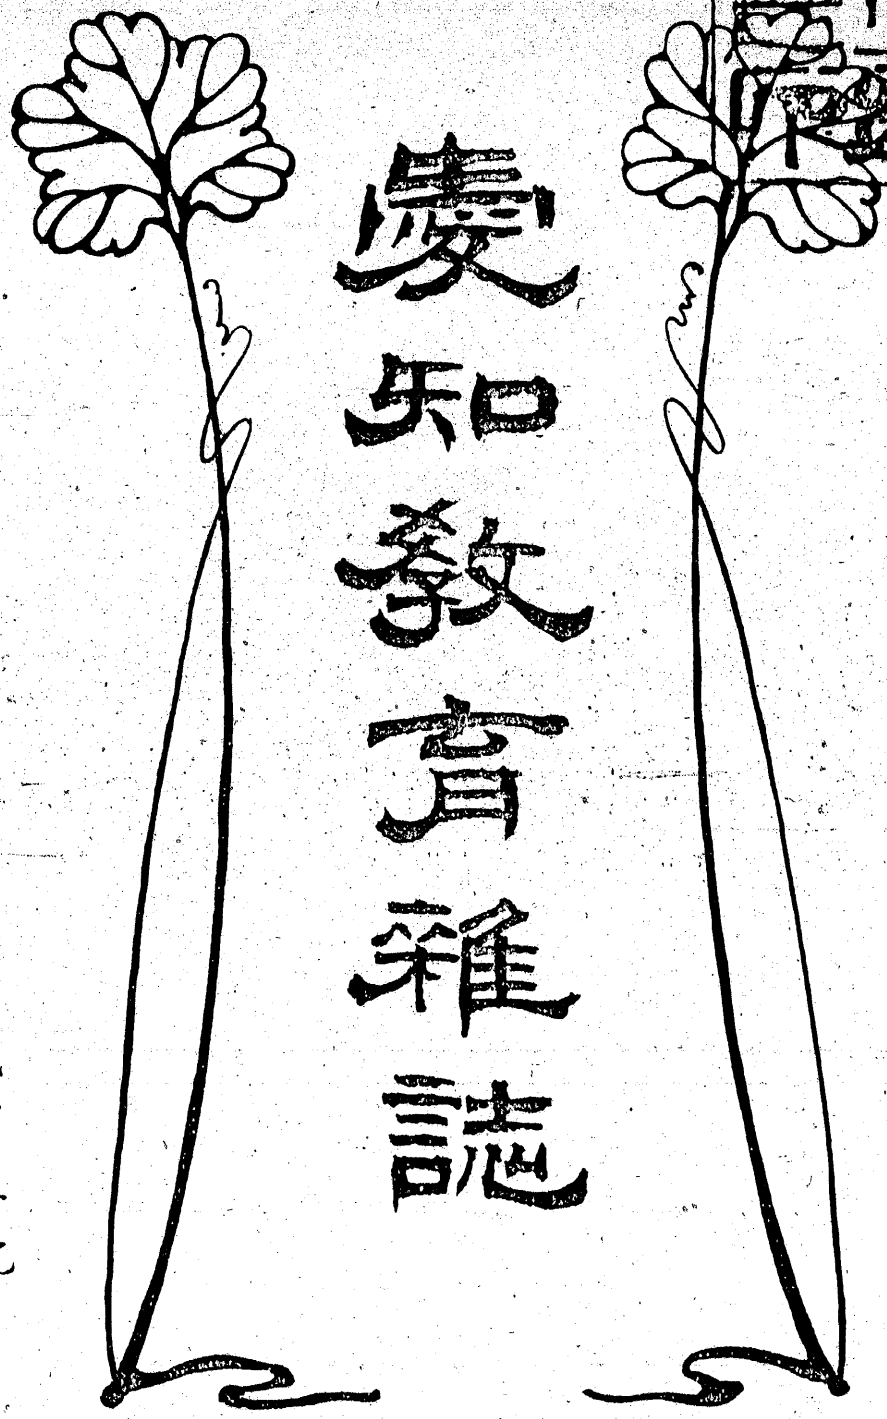 愛知教育雑誌